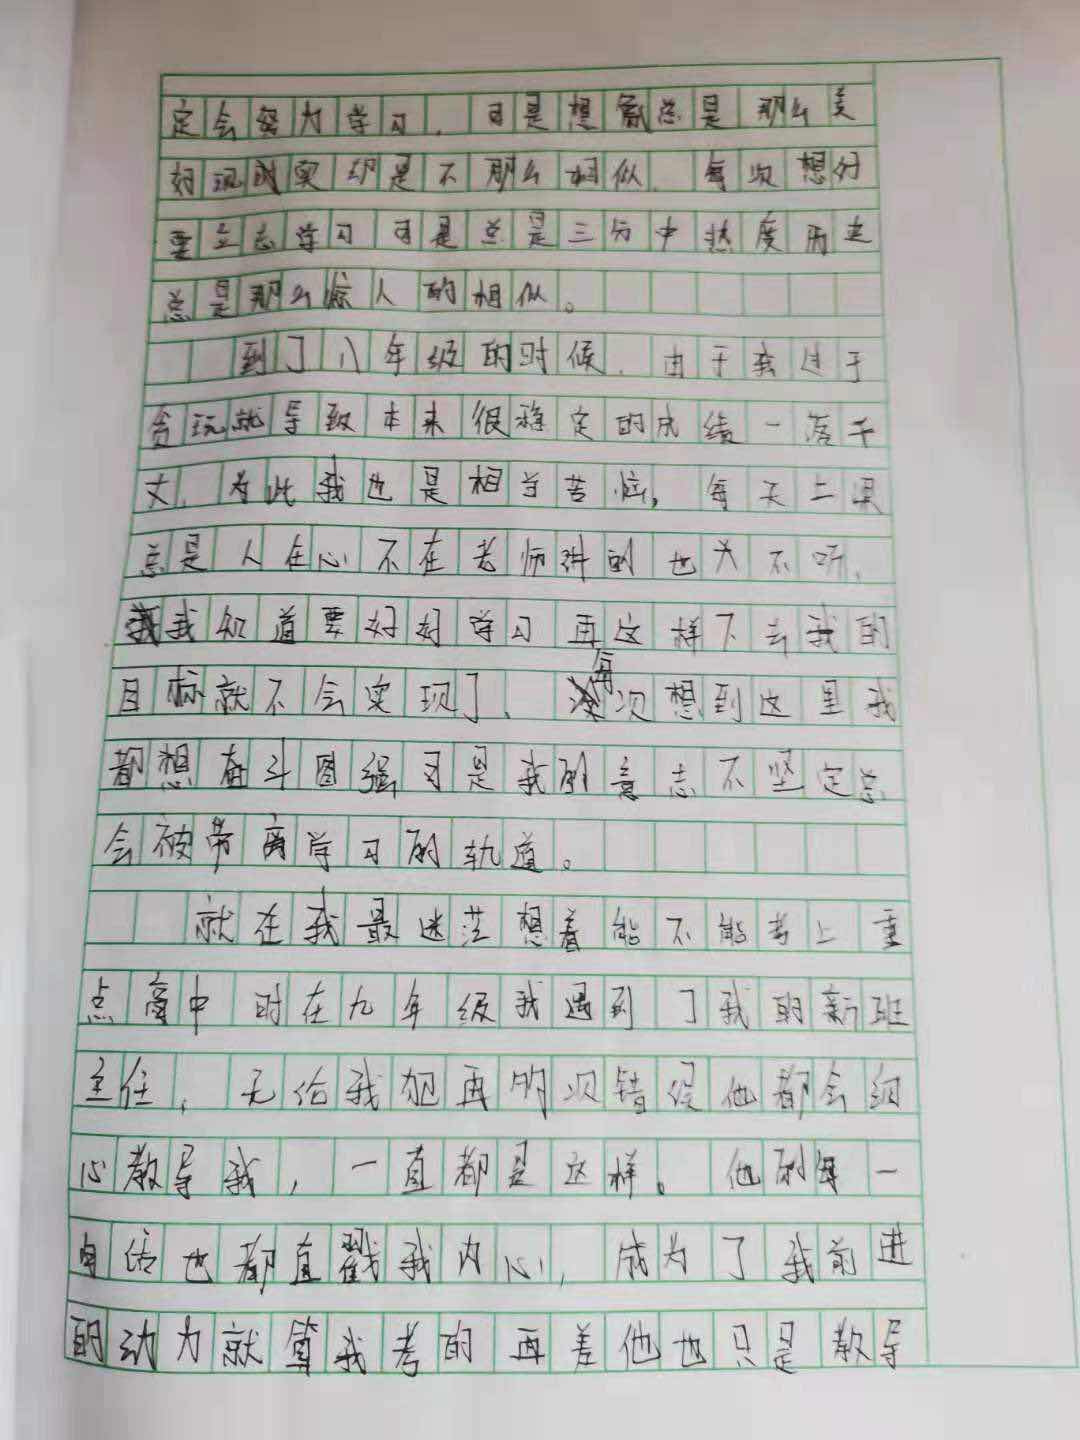 定会努力学习，可是想象总是那么美
好现实却是不那么相似，每次想好
要立志学习可是总是三分中热度而走
总是那么惊人的相似。
到了八年级的时候，由于我过于
贪玩就导致本来很稳定的成绩一落千
丈，为此我也是相当苦恼，每天上课
总是人在心不在老师讲的也大不听，
我知道要好好学习再这样下去我的
目标就不会实现了，每次想到这里我
都想奋斗图强可是我的意志不坚定总
会被带离学习的轨道。
就在我最迷茫想着能不能考上重
点高中时在九年级我遇到了我的新班
主任，无论我犯再的次错误他都会细
心教导我，一直都是这样。他的每一
句话也都直戳我内心，成为了我前进
的动力就算我考的再差他也只是教导